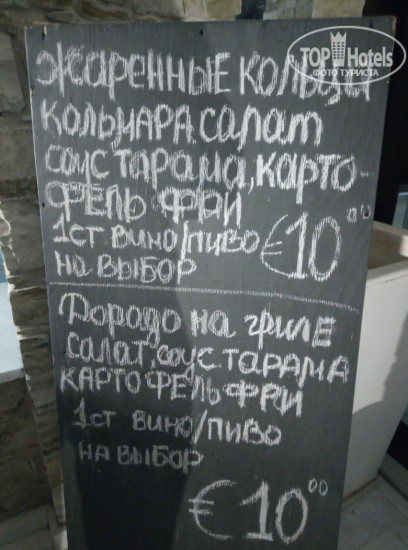 TOP Hotels
ФОТО ТУРИСТА
жаренные кольца
кольмара салат
соус тарама, карто-
фель фри
1ст вино/пиво
на выбор
€10⁰⁰
Дорадо на гриле
салат, соус тарама
картофель фри
1ст вино/пиво
на выбор
€10⁰⁰